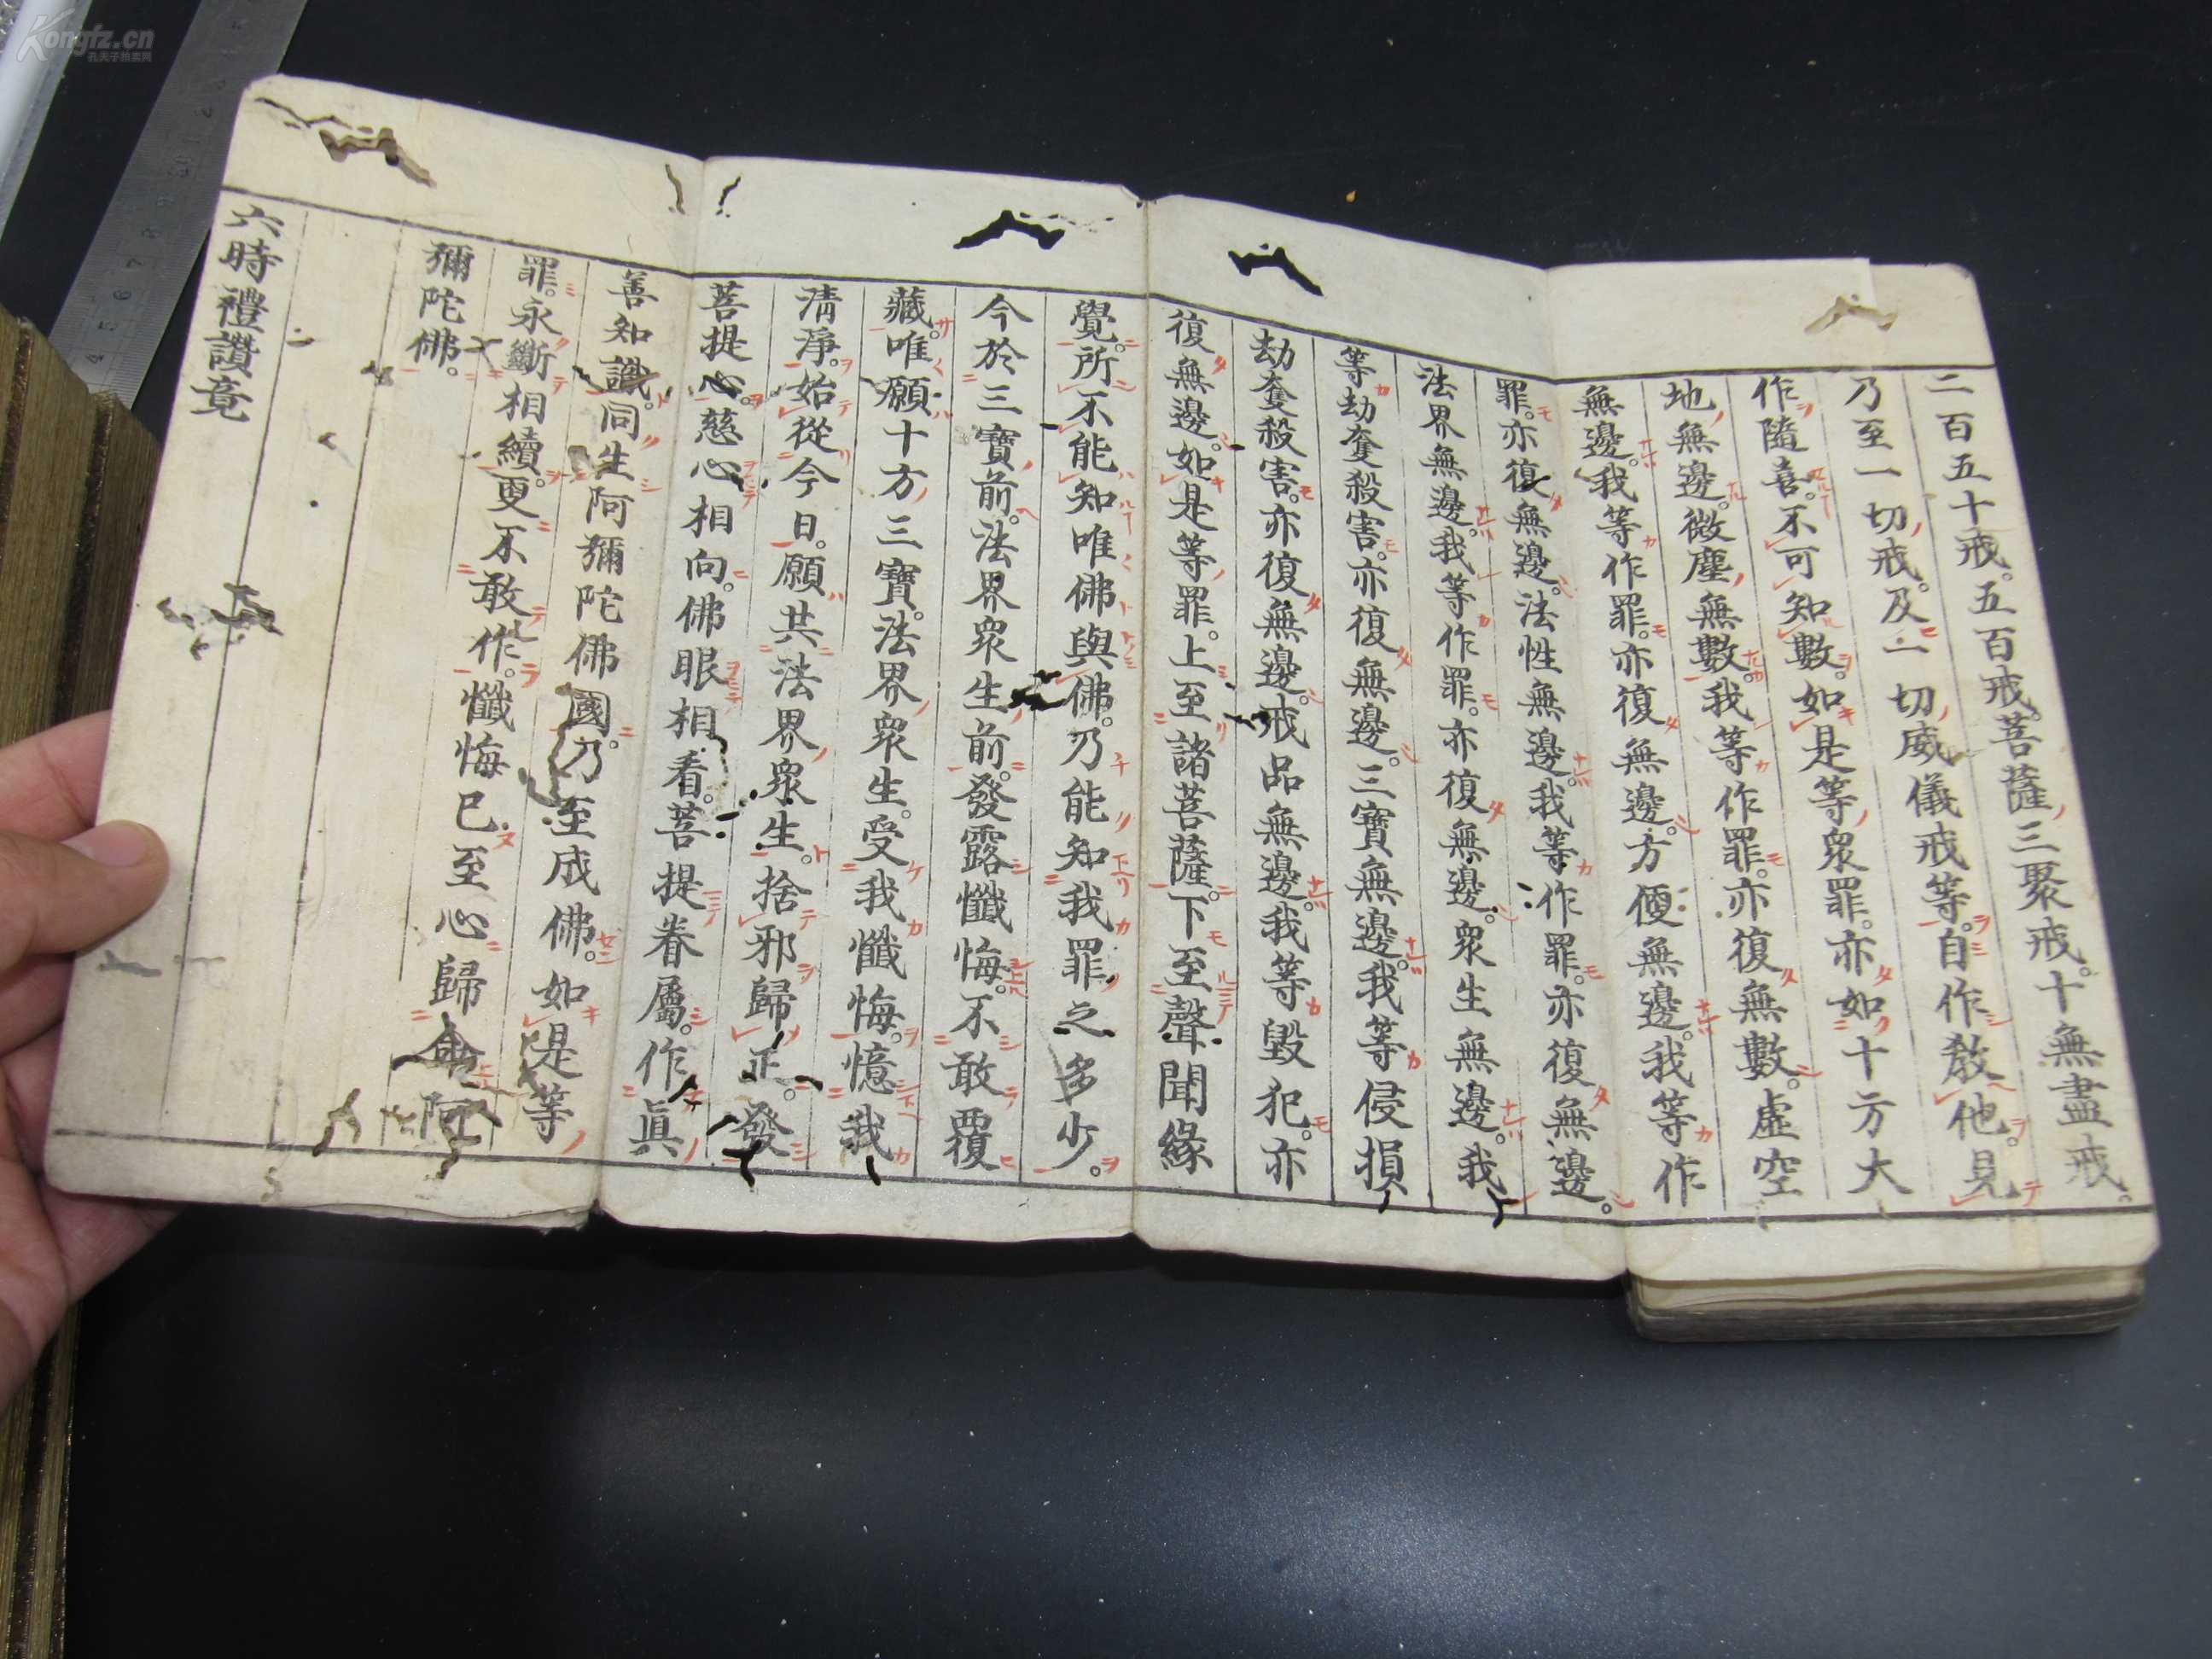 二百五十戒。五百戒。菩薩三聚戒。十無盡戒。
乃至一切戒。及一切威儀戒等。自作教他。見
作隨喜。不可知數。如是等衆罪。亦如十方大
地無邊。微塵無數。我等作罪。亦復無數。虛空
無邊。我等作罪。亦復無邊。方便無邊。我等作
罪。亦復無邊。法性無邊。我等作罪。亦復無邊。
法界無邊。我等作罪。亦復無邊。衆生無邊。我
等劫奪殺害。亦復無邊。三寶無邊。我等侵損
劫奪殺害。亦復無邊。戒品無邊。我等毀犯。亦
復無邊。如是等罪。上至諸菩薩。下至聲聞緣
覺。所不能知唯佛與佛。乃能知我罪之多少。
今於三寶前。法界衆生前。發露懺悔。不敢覆
藏。唯願十方三寶。法界衆生。受我懺悔。憶我
清淨。始從今日。願共法界衆生。捨邪歸正。發
菩提心。慈心相向。佛眼相看。菩提眷屬。作眞
善知識。同生阿彌陀佛國。乃至成佛。如是等
罪。永斷相續。更不敢作。懺悔已至心歸命阿
彌陀佛。
六時禮讚竟
Kongfz.cn
孔夫子拍卖网